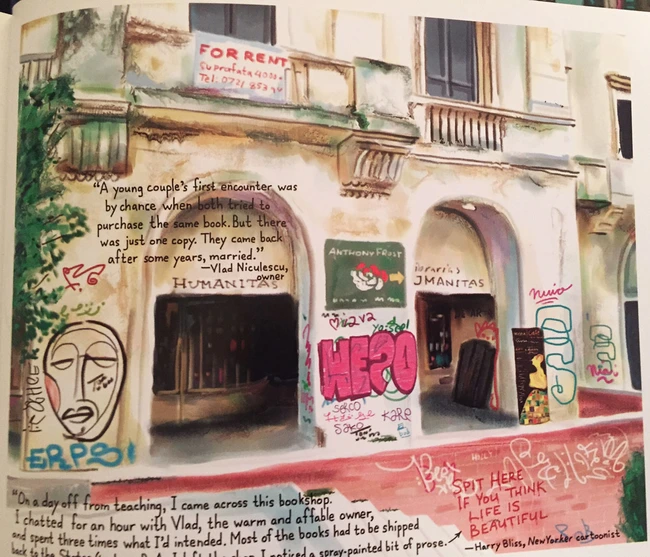 FOR RENT
Tel: 0721
"A young couple's first encounter was
by chance when both tried to
purchase the same book. But there
was just one copy. They came back
after some years, married."
—Vlad Niculescu,
owner
HUMANITAS
ANTHONY FROST
UMANITAS
HESO
SERCO
KARE
SAKO
ERPS
SPIT HERE
IF YOU THINK
LIFE IS
BEAUTIFUL
"On a day off from teaching, I came across this bookshop.
I chatted for an hour with Vlad, the warm and affable owner,
and spent three times what I'd intended. Most of the books had to be shipped
back to the States I noticed a spray-painted bit of prose.
—Harry Bliss, New Yorker cartoonist